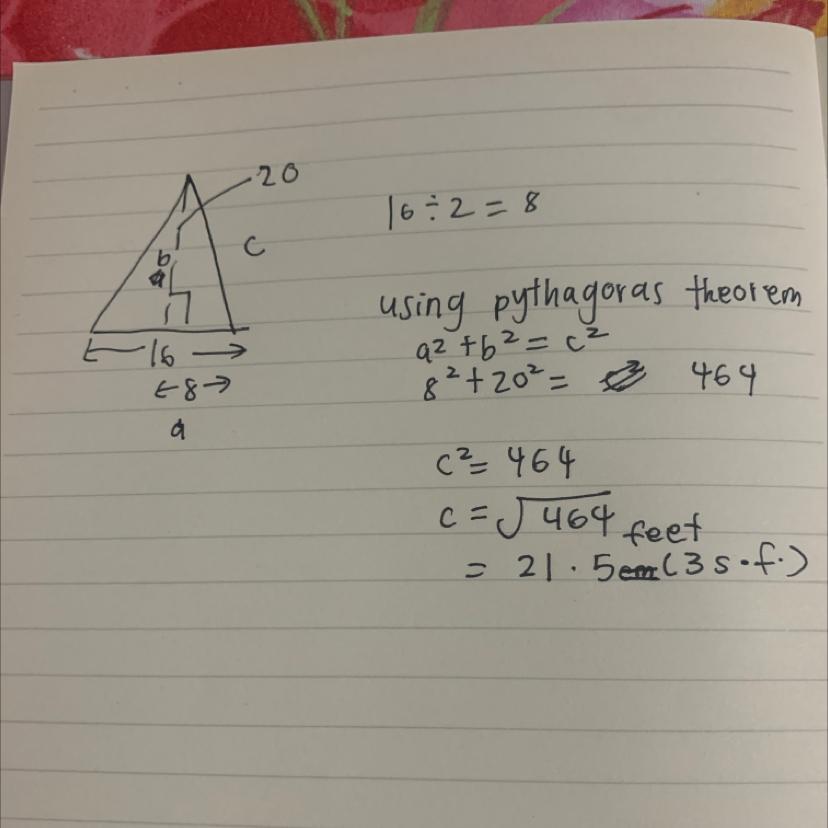 20
b
c
16
8
a
16 ÷ 2 = 8
using pythagoras theorem
a² + b² = c²
8² + 20² = 464
c² = 464
c = √464
= 21.5 feet (3 s.f.)